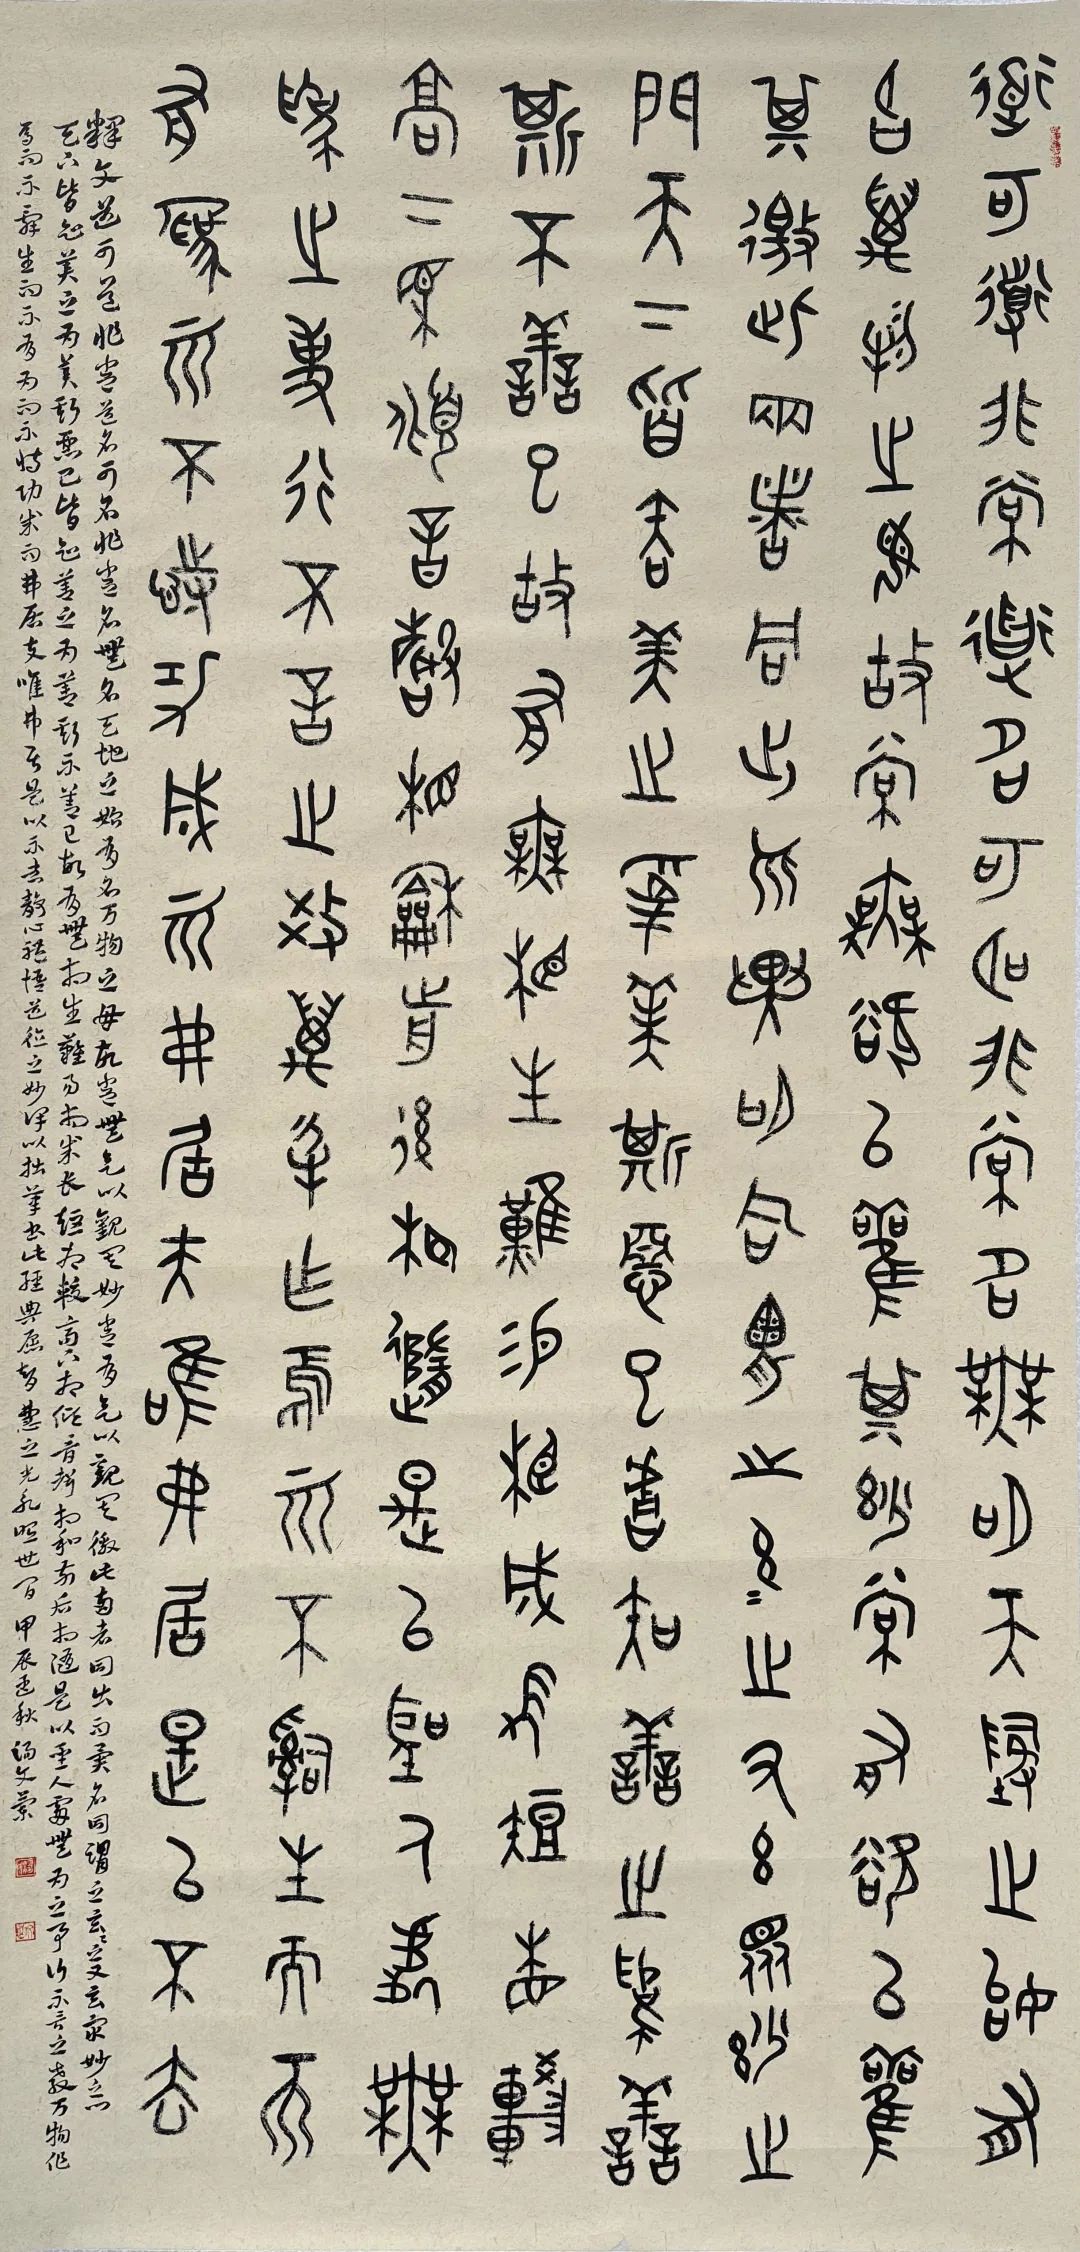 道可道非常道名可名非常名無名天地之始有
名萬物之母故常無欲以觀其妙常有欲以觀
其徼此兩者同出而異名同謂之玄玄之又玄眾妙之
門天下皆知美之為美斯惡已皆知善之為善
斯不善已故有無相生難易相成長短相較
高下相傾音聲相和前後相隨是以聖人處無
為之事行不言之教萬物作焉而不辭生而不
有為而不恃功成而弗居夫唯弗居是以不去
釋文道可道非常道名可名非常名無名天地之始有名万物之母故常無欲以觀其妙常有欲以觀其徼此兩者同出而異名同謂之玄玄之又玄眾妙之門
天下皆知美之为美斯惡已皆知善之为善斯不善已故有無相生難易相成長短相較高下相傾音聲相和前后相隨是以聖人處無为之事行不言之教万物作
焉而不辭生而不有为而不恃功成而弗居夫唯弗居是以不去靜心體悟道德之妙諦以拙筆書此經典願智慧之光永照世间甲辰孟秋